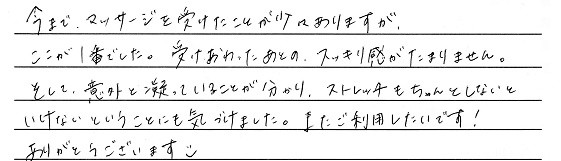 今まで、マッサージを受けたことが少々ありますが、
ここが1番でした。受けおわったあとの、スッキリ感がたまりません。
そして、意外と凝っていることが分かり、ストレッチもちゃんとしないと
いけないということにも気づけました。またご利用したいです！
ありがとうございます